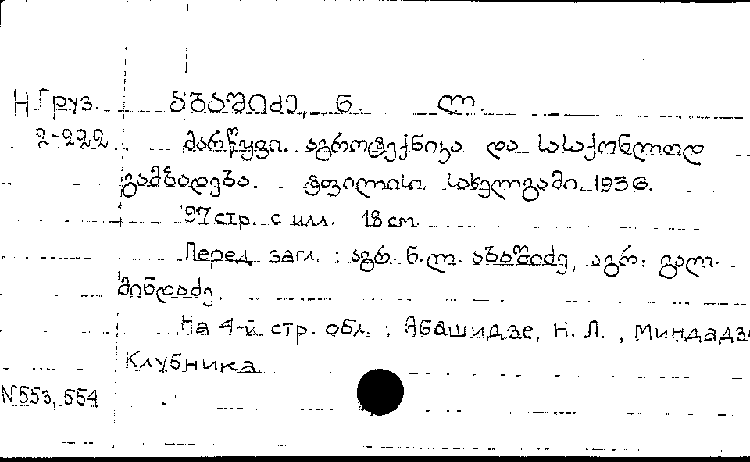 Н Груз. აბაშიძე, ნ. ლ.
2-222 მარწყვი. აგროტექნიკა და სასაქონლოდ
გამზადება. ტფილისი. სახელგამი. 1936.
97 стр. с илл. 18 см.
Перед загл. : აგრ. ნ.ლ. აბაშიძე, აგრ. გალ.
მინდაძე.
На 4-й стр. обл. : Абашидзе, Н. Л. , Миндадзе
Клубника
N 553, 554